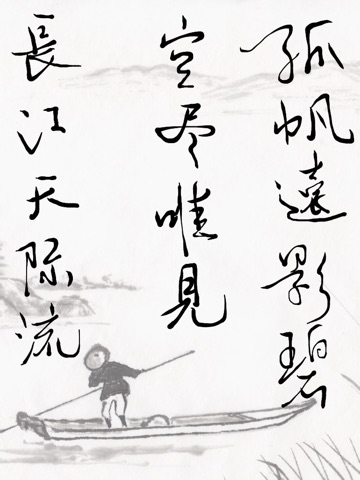 孤帆遠影碧
空尽唯見
長江天际流